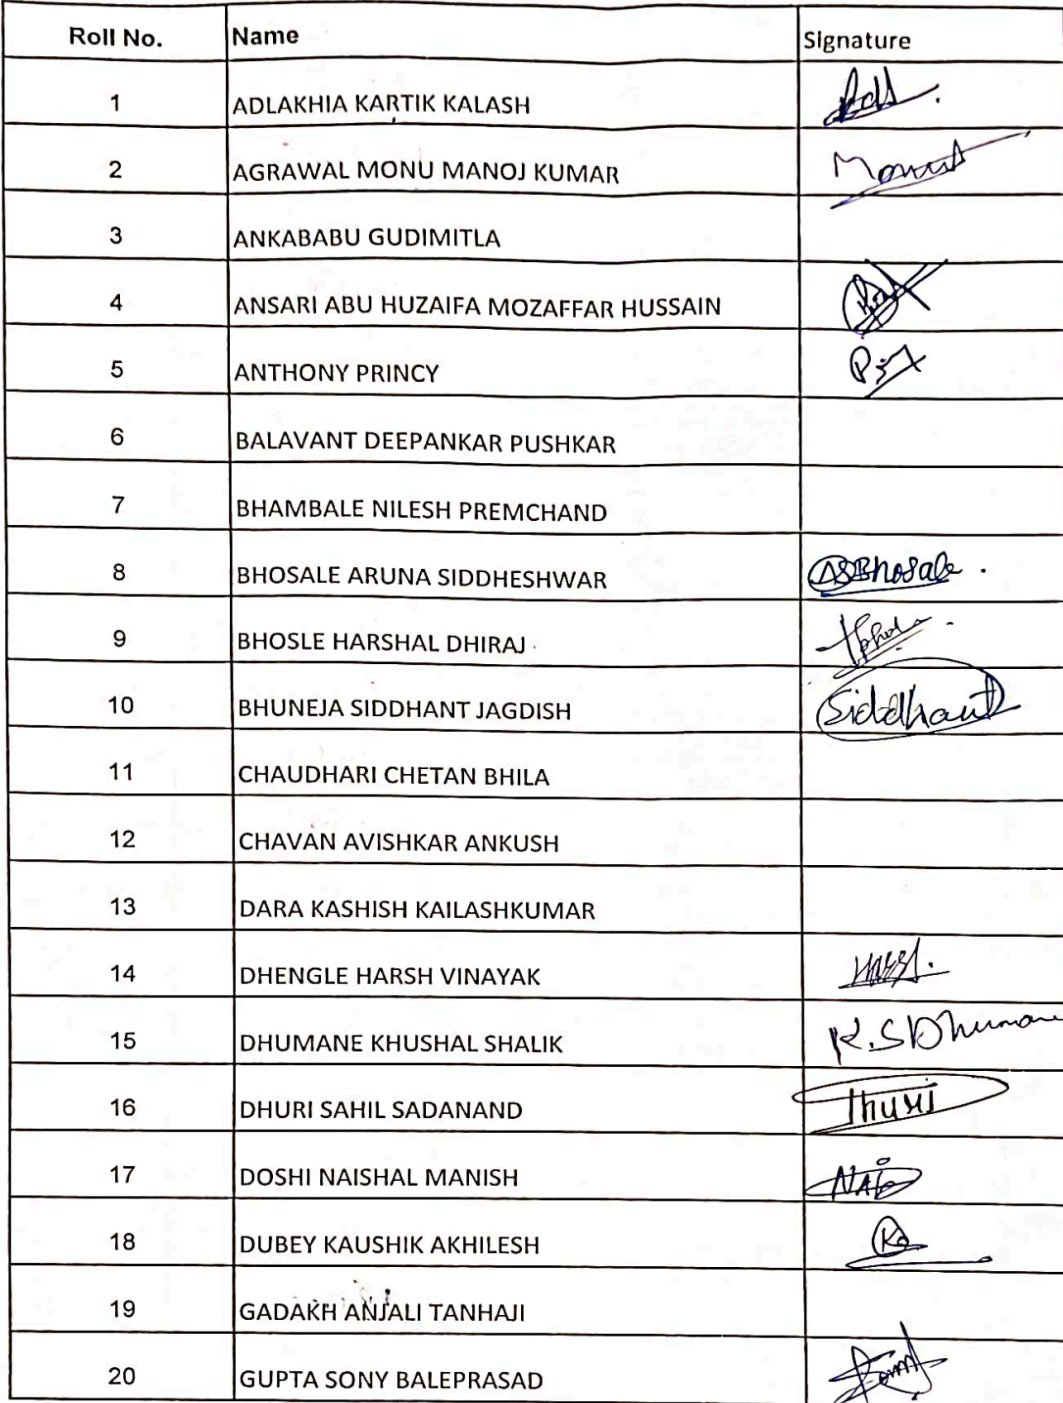 Roll No. Name Signature
1 ADLAKHIA KARTIK KALASH
2 AGRAWAL MONU MANOJ KUMAR
3 ANKABABU GUDIMITLA
4 ANSARI ABU HUZAIFA MOZAFFAR HUSSAIN
5 ANTHONY PRINCY
6 BALAVANT DEEPANKAR PUSHKAR
7 BHAMBALE NILESH PREMCHAND
8 BHOSALE ARUNA SIDDHESHWAR ASBhosale.
9 BHOSLE HARSHAL DHIRAJ
10 BHUNEJA SIDDHANT JAGDISH Siddhant
11 CHAUDHARI CHETAN BHILA
12 CHAVAN AVISHKAR ANKUSH
13 DARA KASHISH KAILASHKUMAR
14 DHENGLE HARSH VINAYAK
15 DHUMANE KHUSHAL SHALIK K.SDhumane
16 DHURI SAHIL SADANAND Dhuri
17 DOSHI NAISHAL MANISH
18 DUBEY KAUSHIK AKHILESH
19 GADAKH ANJALI TANHAJI
20 GUPTA SONY BALEPRASAD